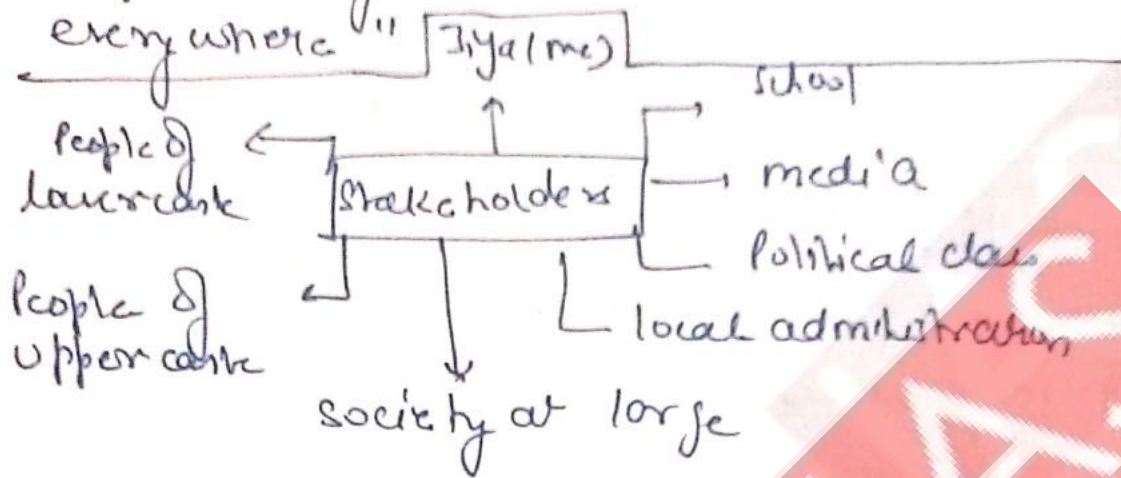 everywhere"
Jiya (me)
School
People of
lower caste
Stakeholders
media
Political class
People of
upper caste
local administration
society at large